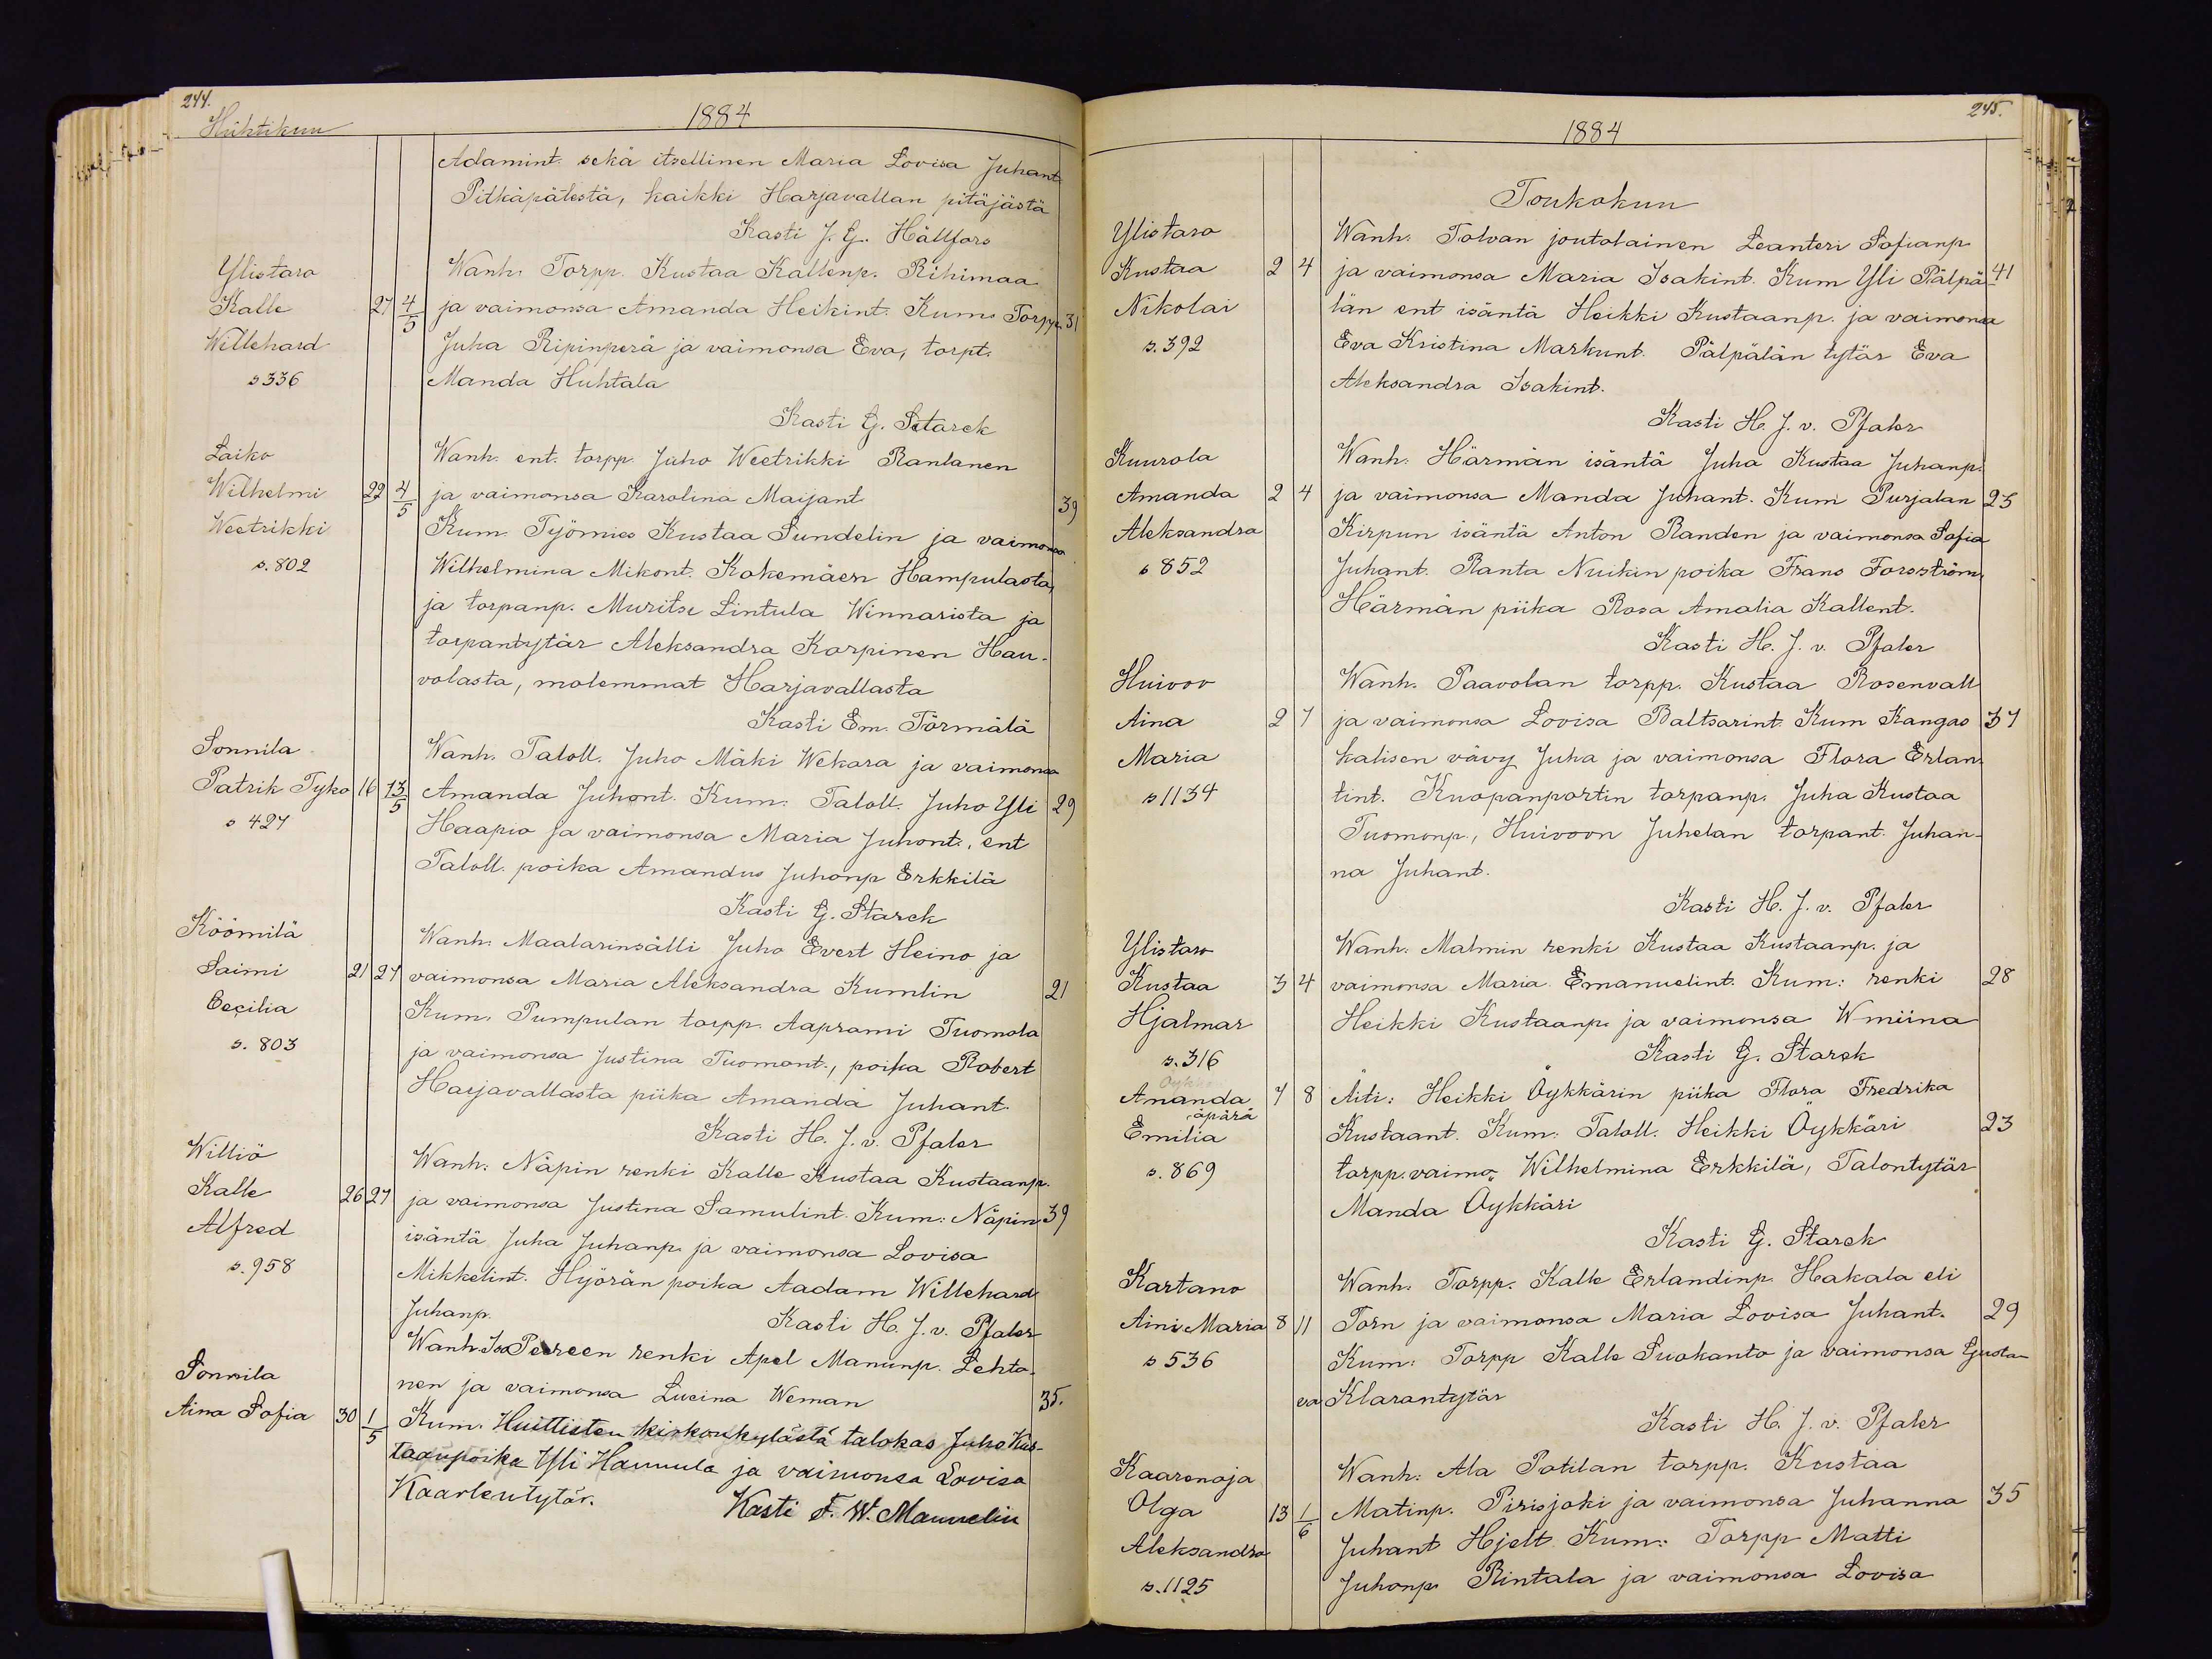 244.
Huhtikuu
1884
Adamint. sekä itsellinen Maria Lovisa Juhant
Pitkäpälestä, kaikki Harjavallan pitäjästä
Kasti J. G. Hällfors
Ylistaro
Wanh. Torpp. Kustaa Kallenp. Riihimaa
Kalle 27 4/5 ja vaimonsa Amanda Heikint. Kum. Torpp. 31
Willehard
Juha Ripinperä ja vaimonsa Eva, torpt.
s 336
Manda Huhtala
Kasti G. Starck
Laiko
Wanh. ent. torpp. Juho Weetrikki Rantanen
Wilhelmi 22 4/5 ja vaimonsa Karolina Maijant 39
Weetrikki
Kum. Työmies Kustaa Sundelin ja vaimonsa
s. 802
Wilhelmina Mikont. Kokemäen Hampulasta,
ja torpanp. Muritse Lintula Winnarista ja
torpantytär Aleksandra Korpinen Hau-
volasta, molemmat Harjavallasta
Kasti Em. Törmälä
Sonnila
Wanh. Taloll. Juho Mäki Wekara ja vaimonsa
Patrik Tyko 16 13/5 Amanda Juhont. Kum. Taloll. Juho Yli 29
s 427
Haapio ja vaimonsa Maria Juhont., ent
Taloll. poika Amandus Juhonp Erkkilä
Kasti G. Starck
Köömilä
Wanh. Maalarinsälli Juho Evert Heino ja
Saimi 21 27 vaimonsa Maria Aleksandra Kumlin 21
Cecilia
Kum. Pumpulan torpp. Aaprami Tuomola
s. 803
ja vaimonsa Justina Tuomont., poika Robert
Harjavallasta piika Amanda Juhant.
Kasti H. J. v. Pfaler
Williö
Wanh. Näpin renki Kalle Kustaa Kustaanp.
Kalle 26 27 ja vaimonsa Justina Samulint. Kum: Näpin 39
Alfred
isäntä Juha Juhanp. ja vaimonsa Lovisa
s. 958
Mikkelint. Hyörän poika Aadam Willehard
Juhanp. Kasti H. J. v. Pfaler
Wanh. Iso Peereen renki Apel Manunp. Lehto-
Sonnila
nen ja vaimonsa Lucina Weman 35.
Aina Sofia 30 1/5 Kum. Huittisten kirkonkylästä talokas Juho Kus-
taanpoika Yli Hannula ja vaimonsa Lovisa
Kaarlentytär. Kasti F. W. Mannelin
245.
1884
Toukokuu
Ylistaro
Wanh. Tolvan joutolainen Leanteri Sofianp
Kustaa 2 4 ja vaimonsa Maria Isakint. Kum Yli Pälpä- 41
Nikolai
län ent isäntä Heikki Kustaanp. ja vaimonsa
s. 392
Eva Kristina Markunt. Pälpälän tytär Eva
Aleksandra Isakint.
Kasti H. J. v. Pfaler
Kuurola
Wanh. Härmän isäntä Juha Kustaa Juhanp.
Amanda 2 4 ja vaimonsa Manda Juhant. Kum Purjalan 23
Aleksandra
Kirpun isäntä Anton Randen ja vaimonsa Sofia
s 852
Juhant. Ranta Nuikin poika Frans Forsström,
Härmän piika Rosa Amalia Kallent.
Kasti H. J. v. Pfaler
Huivoo
Wanh. Paavolan torpp. Kustaa Rosenvall
Aina 2 7 ja vaimonsa Lovisa Baltsarint. Kum Kangas 37
Maria
kalisen vävy Juha ja vaimonsa Flora Erlan-
s 1134
tint. Kuopanportin torpanp. Juha Kustaa
Tuomonp., Huivoon Juhelan torpant. Juhan-
na Juhant.
Kasti H. J. v. Pfaler
Ylistaro
Wanh. Malmin renki Kustaa Kustaanp. ja
Kustaa 3 4 vaimonsa Maria Emanuelint. Kum: renki 28
Hjalmar
Heikki Kustaanp. ja vaimonsa Wmiina
s. 316
Kasti G. Starck
Öykkä
Amanda 7 8 Äiti: Heikki Öykkärin piika Flora Fredrika
äpärä
Emilia
Kustaant. Kum: Taloll. Heikki Öykkäri 23
s. 869
torpp. vaimo Wilhelmina Erkkilä, Talontytär
Manda Öykkäri
Kasti G. Starck
Kartano
Wanh. Torpp. Kalle Erlandinp. Hakala eli
Aini Maria 8 11 Torn ja vaimonsa Maria Lovisa Juhant. 29
s 536
Kum: Torpp Kalle Suokanto ja vaimonsa Gusta-
va Klarantytär
Kasti H. J. v. Pfaler
Kaarenoja
Wanh. Ala Potilan torpp. Kustaa
Olga 13 1/6 Matinp. Pirisjoki ja vaimonsa Juhanna 35
Aleksandra
Juhant Hjelt Kum: Torpp Matti
s. 1125
Juhonp. Rintala ja vaimonsa Lovisa